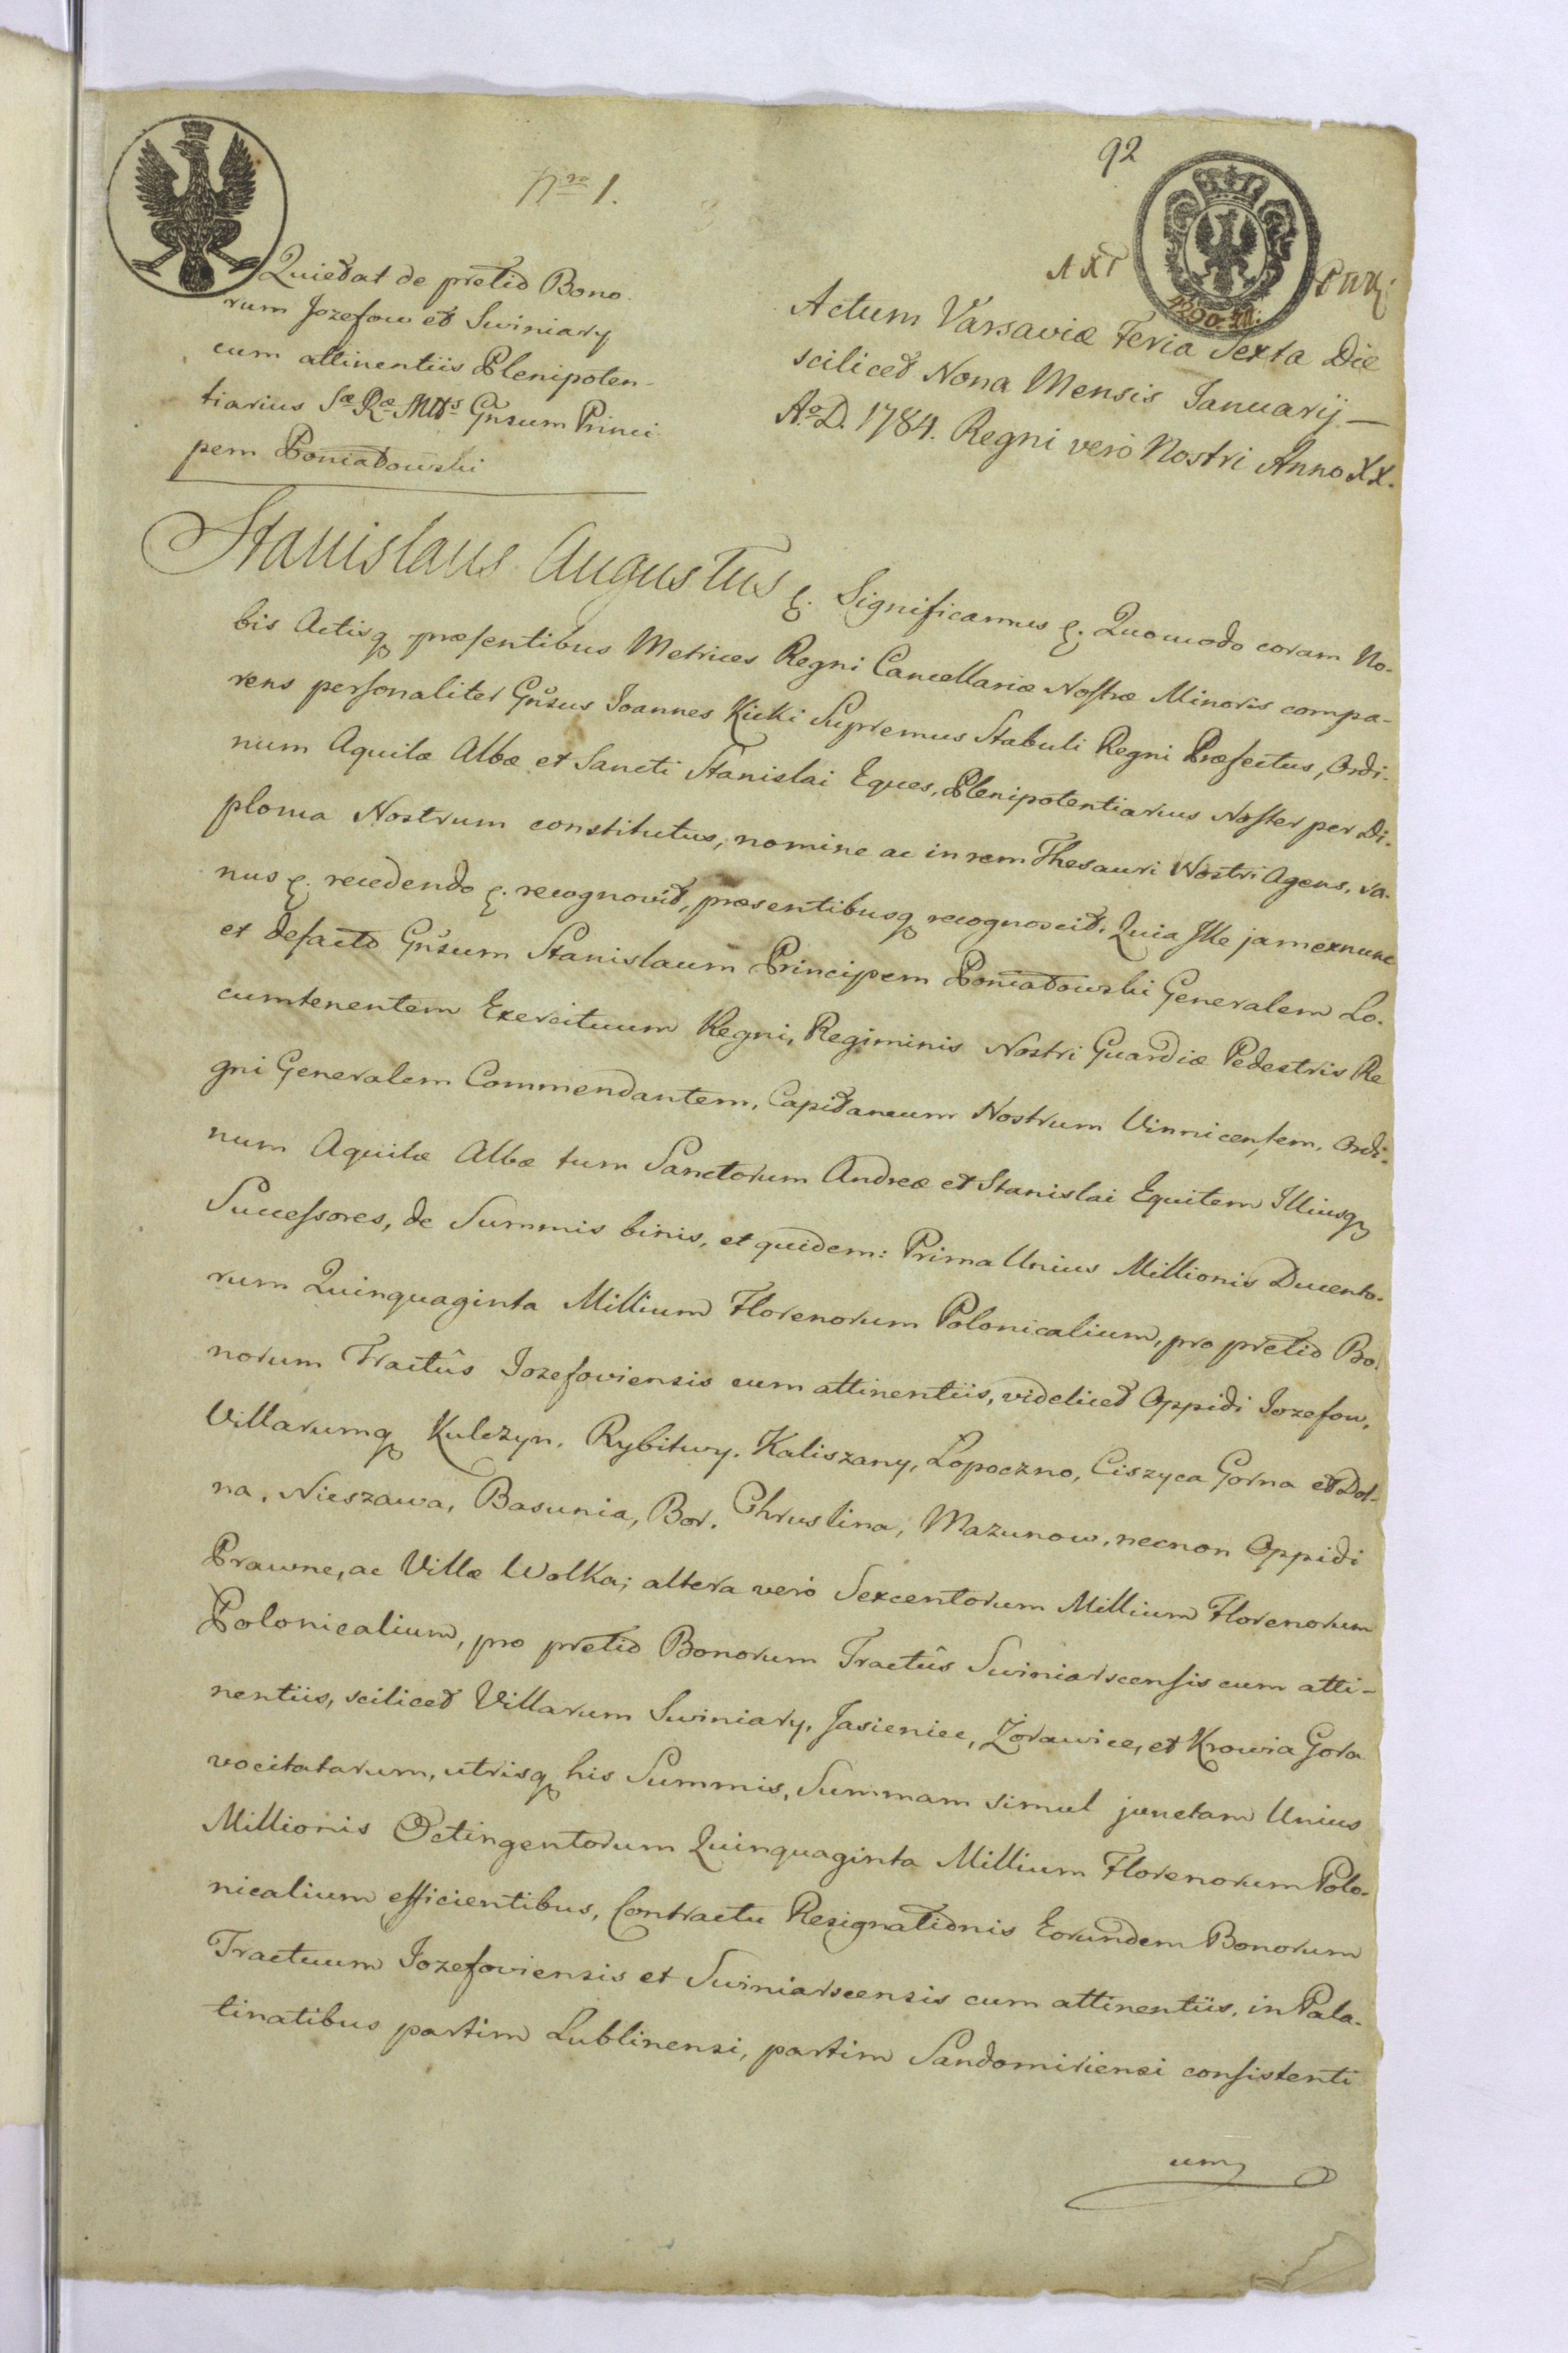 92
Nro 1.
Quietat de pretio Bono-
rum Jozefow et Swiniary
cum attinentiis Plenipoten-
tiarius Sæ Ræ Mttis Gnsum Princi-
pem Poniatowski
Actum Varsaviæ Feria Sexta Die
scilicet Nona Mensis Januarij —
Ao D. 1784. Regni verò Nostri Anno XX.
Stanislaus Augustus &. Significamus &. Quomodo coram No-
bis Actisq præsentibus Metrices Regni Cancellariæ Nostræ Minoris compa-
rens personaliter Gnsus Joannes Kicki Supremus Stabuli Regni Præfectus, Ordi-
num Aquilæ Albæ et Sancti Stanislai Eques, Plenipotentiarius Noster per Di-
ploma Nostrum constitutus, nomine ac in rem Thesauri Nostri Agens, sa-
nus &. recedendo &. recognovit, præsentibusq recognoscit, Quia Ille jam exnunc
et defacto Gnsum Stanislaum Principem Poniatowski Generalem Lo-
cumtenentem Exercituum Regni, Regiminis Nostri Guardiæ Pedestris Re
gni Generalem Commendantem, Capitaneum Nostrum Vinnicensem, Ordi-
num Aquilæ Albæ tum Sanctorum Andreæ et Stanislai Equitem Illiusq
Successores, de Summis binis, et quidem: Prima Unius Millionis Ducento-
rum Quinquaginta Millium Florenorum Polonicalium, pro pretio Bo-
norum Tractûs Jozefoviensis cum attinentiis, videlicet Oppidi Jozefow,
Villarumq Kulczyn, Rybitwy, Kaliszany, Lopoczno, Ciszyca Gorna et Dol-
na, Nieszawa, Basunia, Bor, Chruslina, Mazunow, necnon Oppidi
Prawne, ac Villæ Wolka; altera verò Sexcentorum Millium Florenorum
Polonicalium, pro pretio Bonorum Tractûs Swiniarscensis cum atti-
nentiis, scilicet Villarum Swiniary, Jasieniec, Żorawice, et Krowia Gora
vocitatarum, utrisq his Summis, Summam simul junctam Unius
Millionis Octingentorum Quinquaginta Millium Florenorum Polo-
nicalium efficientibus, Contractu Resignationis Eorundem Bonorum
Tractuum Jozefoviensis et Swiniarscensis cum attinentiis, in Pala-
tinatibus partim Lublinensi, partim Sandomiriensi consistenti
um